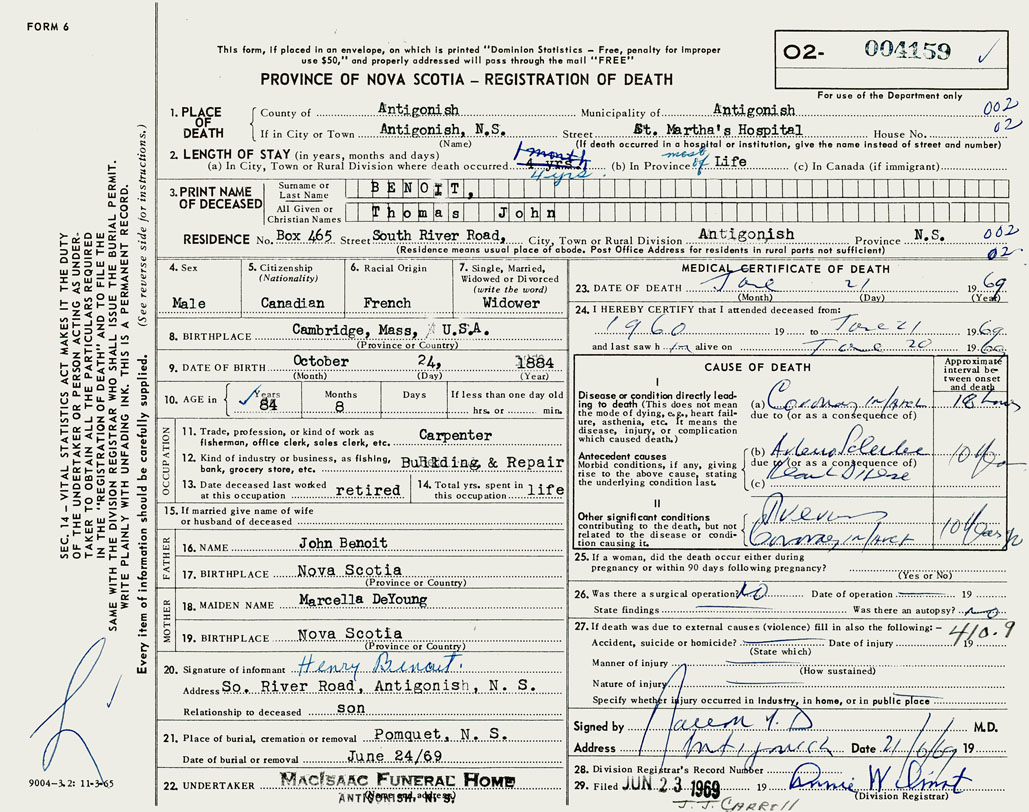 FORM 6
This form, if placed in an envelope, on which is printed "Dominion Statistics – Free, penalty for improper
use $50," and properly addressed will pass through the mail "FREE"
PROVINCE OF NOVA SCOTIA – REGISTRATION OF DEATH
02- 004159 ✓
For use of the Department only
1. PLACE OF DEATH
County of Antigonish Municipality of Antigonish 002
If in City or Town Antigonish, N.S. Street St. Martha's Hospital House No. 02
(Name) (If death occurred in a hospital or institution, give the name instead of street and number)
2. LENGTH OF STAY (in years, months and days) 1 month
(a) In City, Town or Rural Division where death occurred 4 yrs. (b) In Province most of Life (c) In Canada (if immigrant)
4 yrs
3. PRINT NAME OF DECEASED
Surname or Last Name BENOIT,
All Given or Christian Names Thomas John
RESIDENCE No. Box 465 Street South River Road, City, Town or Rural Division Antigonish Province N.S. 002
(Residence means usual place of abode. Post Office Address for residents in rural parts not sufficient) 02
4. Sex Male
5. Citizenship (Nationality) Canadian
6. Racial Origin French
7. Single, Married, Widowed or Divorced (write the word) Widower
8. BIRTHPLACE Cambridge, Mass, U.S.A.
(Province or Country)
9. DATE OF BIRTH October 24, 1884
(Month) (Day) (Year)
10. AGE in ✓ Years 84 Months 8 Days If less than one day old hrs. or min.
OCCUPATION
11. Trade, profession, or kind of work as fisherman, office clerk, sales clerk, etc. Carpenter
12. Kind of industry or business, as fishing, bank, grocery store, etc. Building & Repair
13. Date deceased last worked at this occupation retired
14. Total yrs. spent in this occupation life
15. If married give name of wife or husband of deceased
FATHER
16. NAME John Benoit
17. BIRTHPLACE Nova Scotia
(Province or Country)
MOTHER
18. MAIDEN NAME Marcella DeYoung
19. BIRTHPLACE Nova Scotia
(Province or Country)
20. Signature of informant Henry Benoit.
Address So. River Road, Antigonish, N. S.
Relationship to deceased son
21. Place of burial, cremation or removal Pomquet, N. S.
Date of burial or removal June 24/69
22. UNDERTAKER MacIsaac Funeral Home
(Name and address)
ANTIGONISH, N. S.
MEDICAL CERTIFICATE OF DEATH
23. DATE OF DEATH June 21 1969
(Month) (Day) (Year)
24. I HEREBY CERTIFY that I attended deceased from:
1960 19 to June 21 1969
and last saw h im alive on June 20 1969
CAUSE OF DEATH
Approximate interval between onset and death
I
Disease or condition directly leading to death (This does not mean the mode of dying, e.g., heart failure, asthenia, etc. It means the disease, injury, or complication which caused death.)
(a) Coronary infarct 18 hours
due to (or as a consequence of)
Antecedent causes
Morbid conditions, if any, giving rise to the above cause, stating the underlying condition last.
(b)
due to (or as a consequence of)
(c) Heart Disease
II
Other significant conditions contributing to the death, but not related to the disease or condition causing it.
Coronary infarct
25. If a woman, did the death occur either during
pregnancy or within 90 days following pregnancy?
(Yes or No)
26. Was there a surgical operation? NO Date of operation 19
State findings Was there an autopsy? NO
27. If death was due to external causes (violence) fill in also the following: – 410.9
Accident, suicide or homicide? Date of injury 19
(State which)
Manner of injury
(How sustained)
Nature of injury
Specify whether injury occurred in Industry, in home, or in public place
Signed by M.D.
Address Antigonish Date 21/6/69 19
28. Division Registrar's Record Number
29. Filed JUN 23 1969 19
(Division Registrar)
J. J. CARROLL
SEC. 14 – VITAL STATISTICS ACT MAKES IT THE DUTY
OF THE UNDERTAKER OR PERSON ACTING AS UNDER-
TAKER TO OBTAIN ALL THE PARTICULARS REQUIRED
IN THE "REGISTRATION OF DEATH" AND TO FILE THE
SAME WITH THE DIVISION REGISTRAR WHO SHALL ISSUE THE BURIAL PERMIT.
WRITE PLAINLY WITH UNFADING INK. THIS IS A PERMANENT RECORD.
Every item of information should be carefully supplied. (See reverse side for instructions.)
9004-3.2: 11-3-65